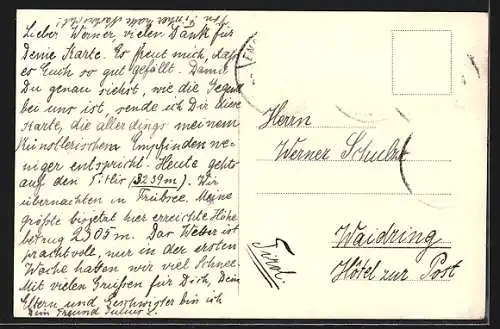 Lieber Werner, vielen Dank für
Deine Karte. Es freut mich, daß
es Euch so gut gefällt. Damit
Du genau siehst, wie die Gegend
bei uns ist, sende ich Dir diese
Karte, die allerdings meinem
künstlerischen Empfinden we-
niger entspricht. Heute gehts
auf den Titlis (3239m). Wir
übernachten in Trübsee. Meine
größte bisjetzt hier erreichte Höhe
betrug 2305m. Das Wetter ist
prachtvoll, nur in der ersten
Woche hatten wir viel Schnee.
Mit vielen Grüßen für Dich, Dein
Eltern und Geschwister bin ich
Dein Freund Julius
Herrn
Werner Schulze
Waidring
Hôtel zur Post
Tirol.